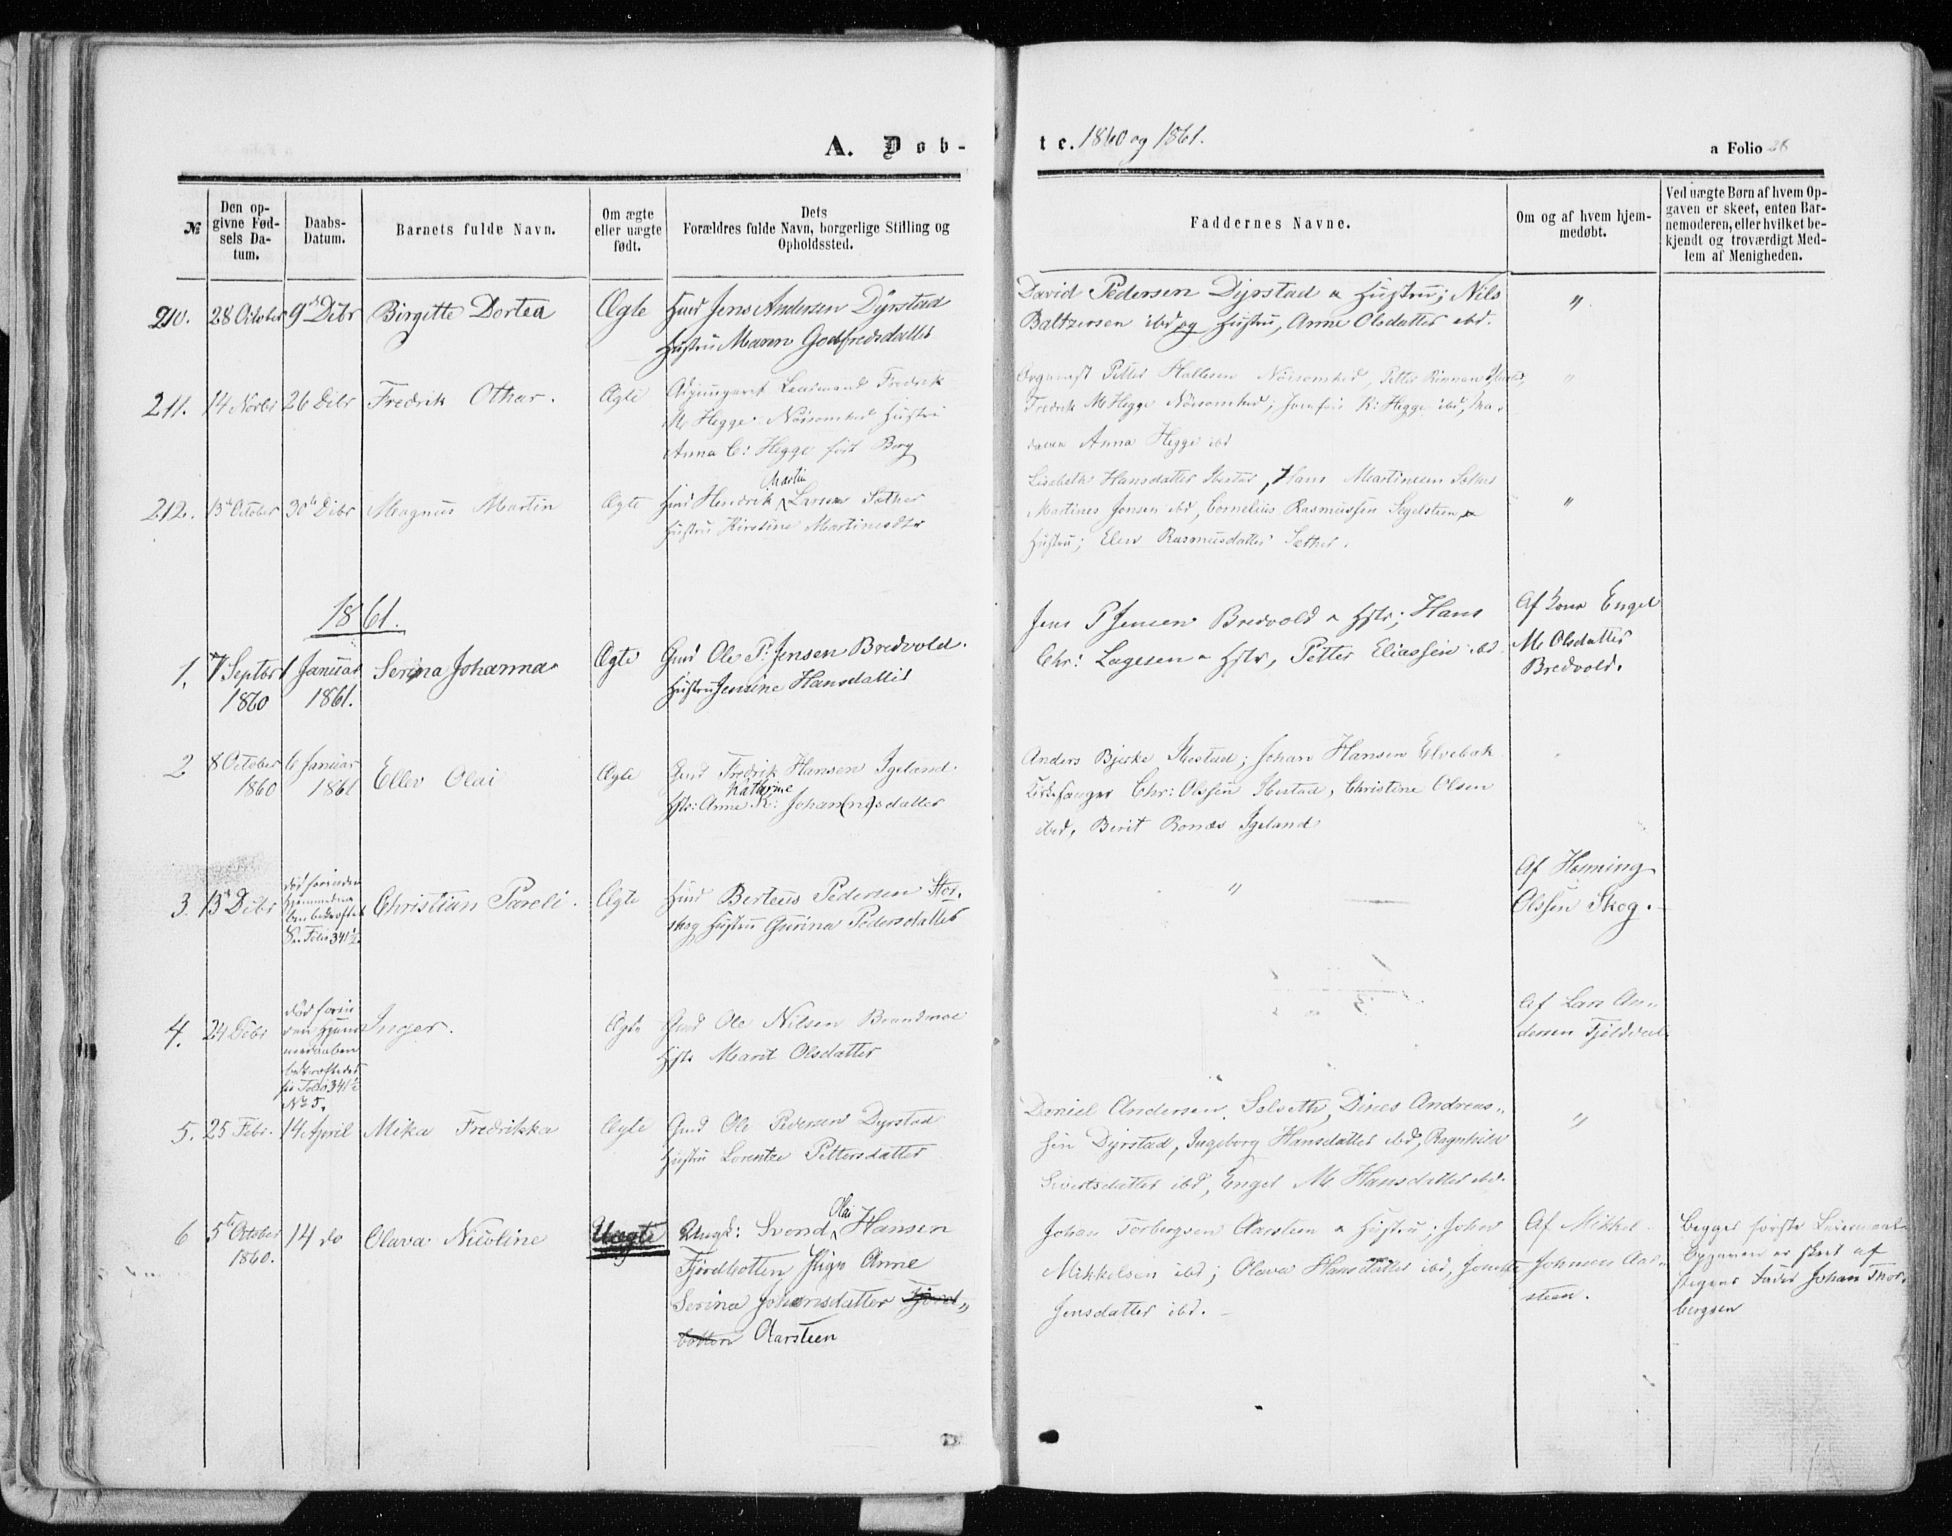 A. Døb-
te. 1860 og 1861.
a Folio 28
№
Den op-
givne Fød-
sels Da-
tum.
Daabs-
Datum.
Barnets fulde Navn.
Om ægte
eller uægte
født.
Dets
Forældres fulde Navn, borgerlige Stilling og
Opholdssted.
Faddernes Navne.
Om og af hvem hjem-
medøbt.
Ved uægte Børn af hvem Op-
gaven er skeet, enten Bar-
nemoderen, eller hvilket be-
kjendt og troværdigt Med-
lem af Menigheden.
210. 28 October 9de Debr Birgitte Dortea Ægte Jens Andersen Dyrstad
Hustru Maren Godtfredsdatter
David Pedersen Dyrstad & Hustru; Nils
Baltzersen ibd og Hustru, Anne Olsdatter ibd.
"
211. 14 Novbr 26 Debr Fredrik Othar. Ægte Adjungeret Lensmand Fredrik
M. Hegge Nøisomhed Hustru
Anna C: Hegge født Berg
Petter Hallesen Nøisomhed, Petter Rinnan
Fredrik M Hegge Nøisomhed; Jomfru K: Hegge ibd, Ma-
damen Anna Hegge ibd
"
212. 13de October 30te Debr Magnus Martin Ægte Hendrik Martin Larsen Sæther
Hustru Kirstine Martinesdtr
Lisebeth Hansdatter Ibestad, Hans Martinsen
Martines Jonsen ibd, Cornelius Rasmussen Segelsteen &
Hustru; Elen Rasmusdatter Sæther.
"
1861.
1. 7 Septbr 1860 1 Januar 1861. Serina Johanna Ægte Gmd Ole P: Jensen Bredvold.
Hustru Jensine Hansdatter
Jens P Jensen Bredvold & Hstr; Hans
Chr: Lagesen & Hstr, Petter Eliassen ibd
Af Kone Engel
M. Olsdatter
Bredvold.
2 8 October 1860 6 Januar 1861 Ellev Olai Ægte Gmd Fredrik Hansen Igeland.
Hstr: Anne K: Kathrine Johan(ne)sdatter
Anders Bjerke Ibestad; Johan Hansen Elvebak
Kirkesanger Chr: Olsen Ibestad, Christine Olsen
ibd, Berit Bonæs Igeland
3. 13de Debr død forinden
Hjemmedaa-
ben bekræftet
Se Folio 341½.
Christian Pareli. Ægte Berteus Pedersen Stor-
skog Hustru Gurina Pedersdatter
"
Af Henning
Olsen Skog.
4. 24 Debr død forin-
den Hjem-
medaaben
bekræftedes
se Folio 341½
No 5.
Inger. Ægte Gmd Ole Nilsen Brandmoe
Hstr Marit Olsdatter
Af Lars An-
dersen Tjeldvel
5. 25 Febr. 14 April Mika Fredrikka Ægte Gmd Ole Pedersen Dyrstad
Hustru Lorentze Pettersdatter
Daniel Andersen Solseth, Dines Andreas-
sen Dyrstad, Ingeborg Hansdatter ibd, Regnhild
Sivertsdatter ibd, Engel M Hansdatter ibd.
"
6 5te October 1860. 14 do Olava Nicoline Uægte Ungk: Svend Olai Hansen
Fjordbotten Pige Anne
Serina Johansdatter Fjord-
botten Aarsteen
Johan Torbergsen Aarsteen & Hustru; John
Mikkelsen ibd; Olava Hansdatter ibd, Jonette
Jensdatter ibd.
Af Mikkel
Johnsen Aar-
steen.
Begges første Leiermaal
Opgaven er skeet af
Pigens Fader Johan Thor-
bergsen